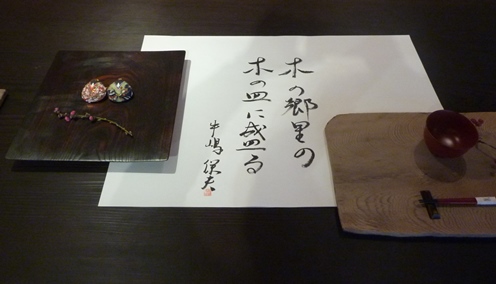 木の郷里の
木の皿に盛る
牛嶋保夫